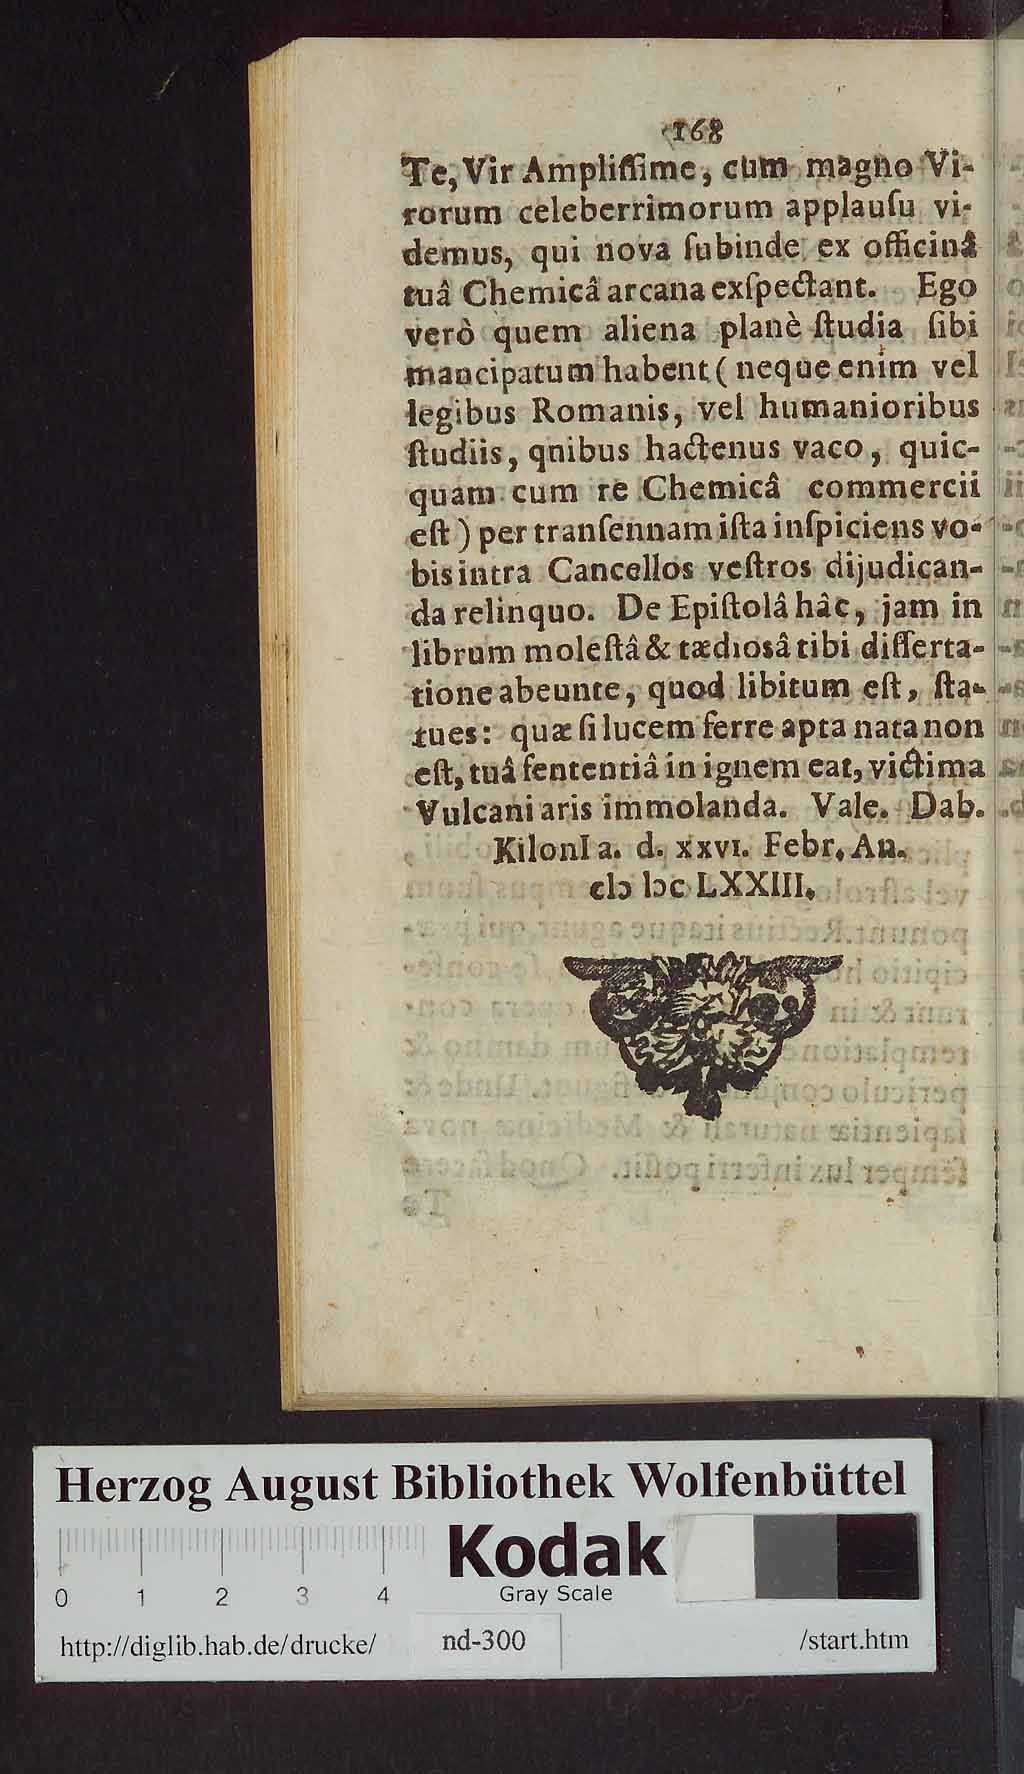 168
Te, Vir Ampliſſime, cum magno Vi-
rorum celeberrimorum applauſu vi-
demus, qui nova ſubinde ex officinâ
tuâ Chemicâ arcana exſpectant. Ego
verò quem aliena planè ſtudia ſibi
mancipatum habent ( neque enim vel
legibus Romanis, vel humanioribus
ſtudiis, qnibus hactenus vaco, quic-
quam cum re Chemicâ commercii
eſt ) per tranſennam iſta inſpiciens vo-
bis intra Cancellos veſtros dijudican-
da relinquo. De Epiſtolâ hâc, jam in
librum moleſtâ & tædiosâ tibi diſſerta-
tione abeunte, quod libitum eſt, ſta-
tues: quæ ſi lucem ferre apta nata non
eſt, tuâ ſententiâ in ignem eat, victima
Vulcani aris immolanda. Vale. Dab.
KilonIa. d. xxvi. Febr. An.
cIɔ Iɔc LXXIII.
Herzog August Bibliothek Wolfenbüttel
Kodak
Gray Scale
0 1 2 3 4
http://diglib.hab.de/drucke/ nd-300 /start.htm